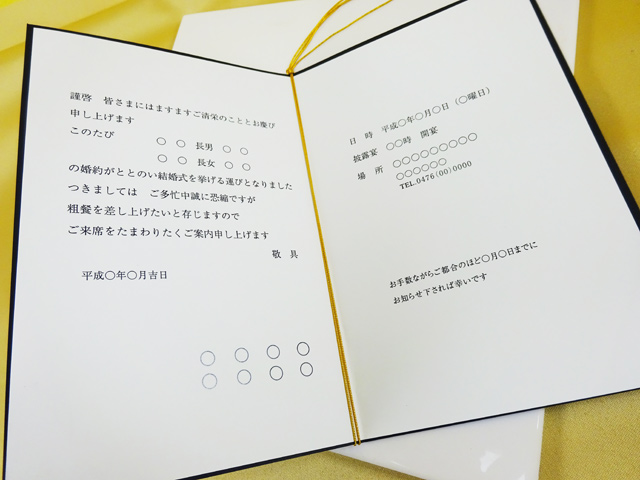 謹啓　皆さまにはますますご清栄のこととお慶び
申し上げます
このたび
○　○　長男　○　○
○　○　長女　○　○
の婚約がととのい結婚式を挙げる運びとなりました
つきましては　ご多忙中誠に恐縮ですが
粗餐を差し上げたいと存じますので
ご来席をたまわりたくご案内申し上げます
敬　具
平成○年○月吉日
○　○　○　○
○　○　○　○
日　時　平成○年○月○日（○曜日）
披露宴　○○時　開宴
場　所　○○○○○○○○○
○○○○○○
TEL.0476(00)0000
お手数ながらご都合のほど○月○日までに
お知らせ下されば幸いです